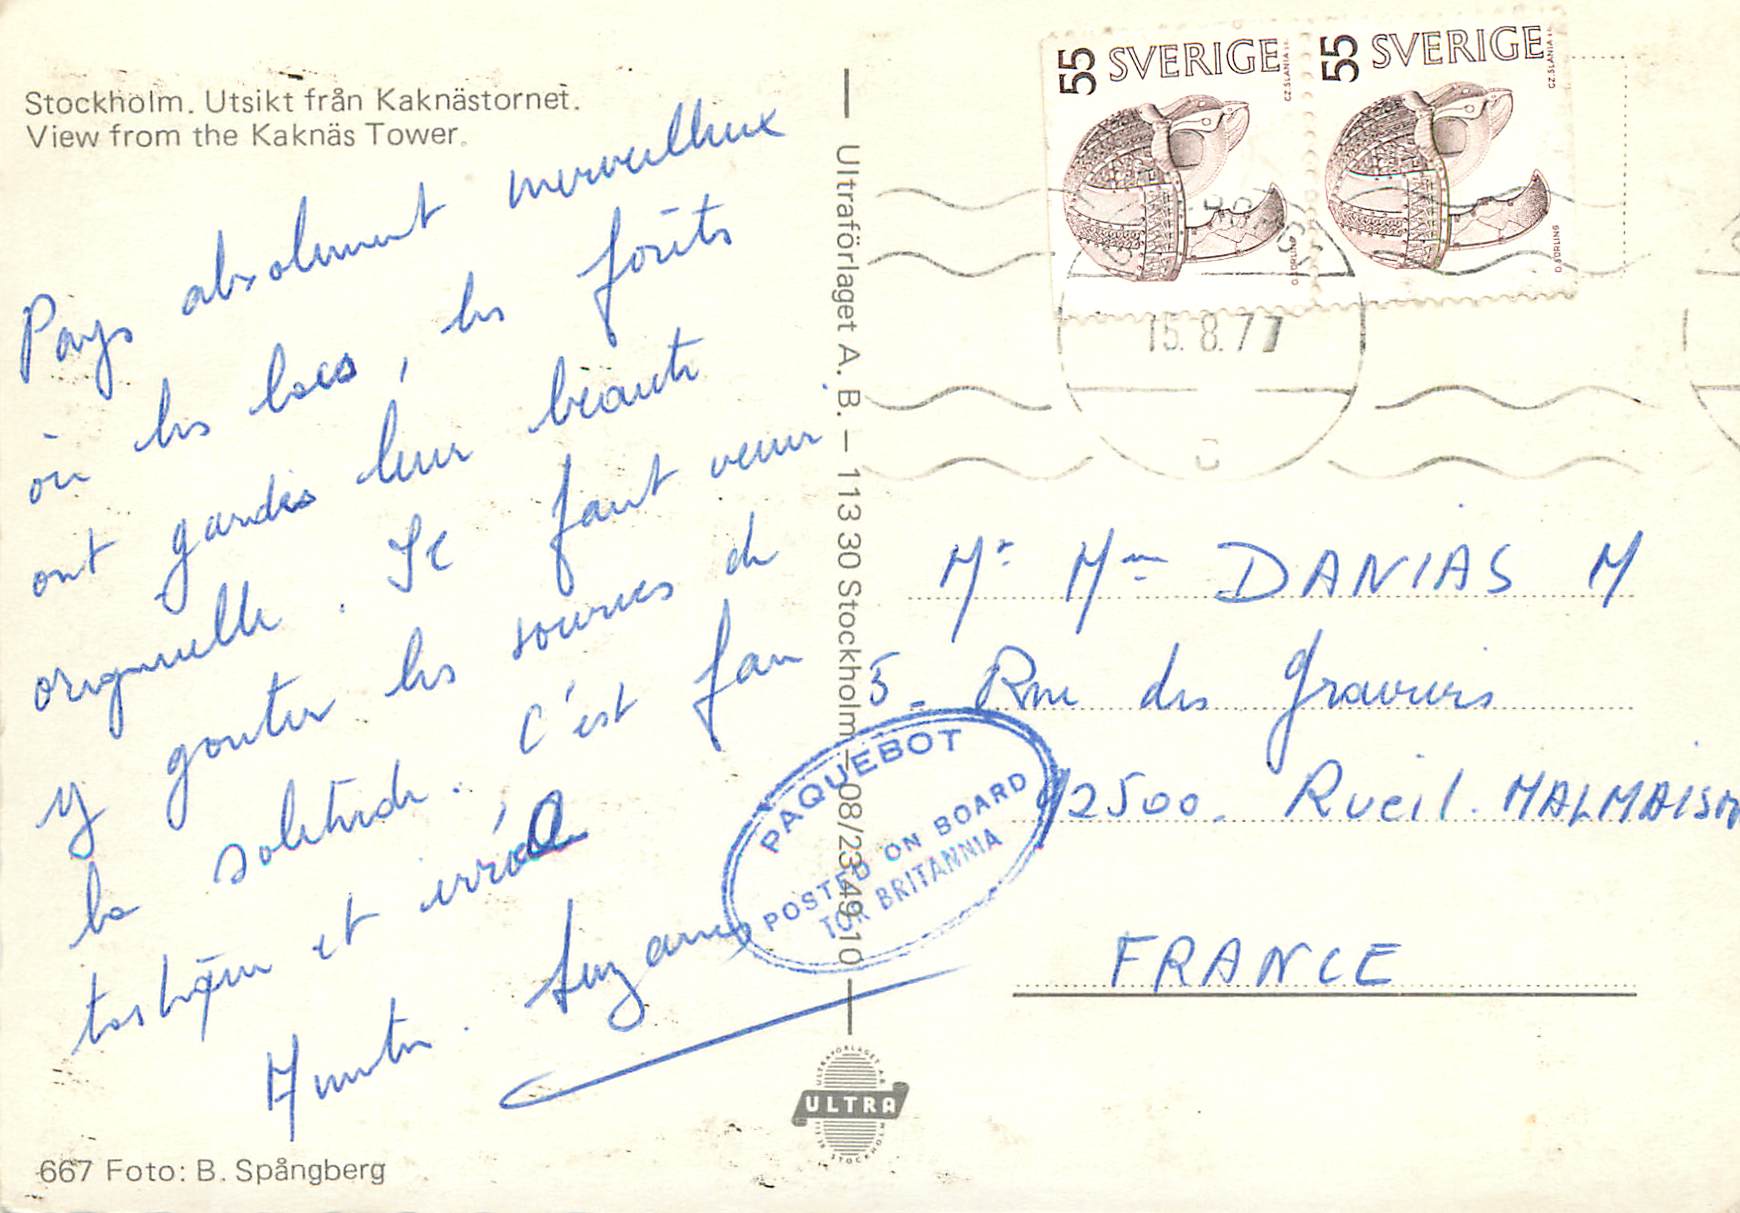 Stockholm. Utsikt från Kaknästornet.
View from the Kaknäs Tower.
Pays absolument merveilleux
où les lacs, les forêts
ont gardés leur beauté
originelle. Il faut venir
y gouter les sources de
la solitude. C'est fan
tastique et irréel
Amitiés. Suzanne
667 Foto: B. Spångberg
Ultraförlaget A. B. – 113 30 Stockholm – 08/23 49 10
ULTRA
55 SVERIGE
CZ SLANIA SC.
O. SÖRLING
55 SVERIGE
CZ SLANIA SC.
O. SÖRLING
15.8.77
Mr Mme DANIAS M
5. Rue des Graviers
92500. Rueil. MALMAISON
FRANCE
PAQUEBOT
POSTED ON BOARD
TOR BRITANNIA